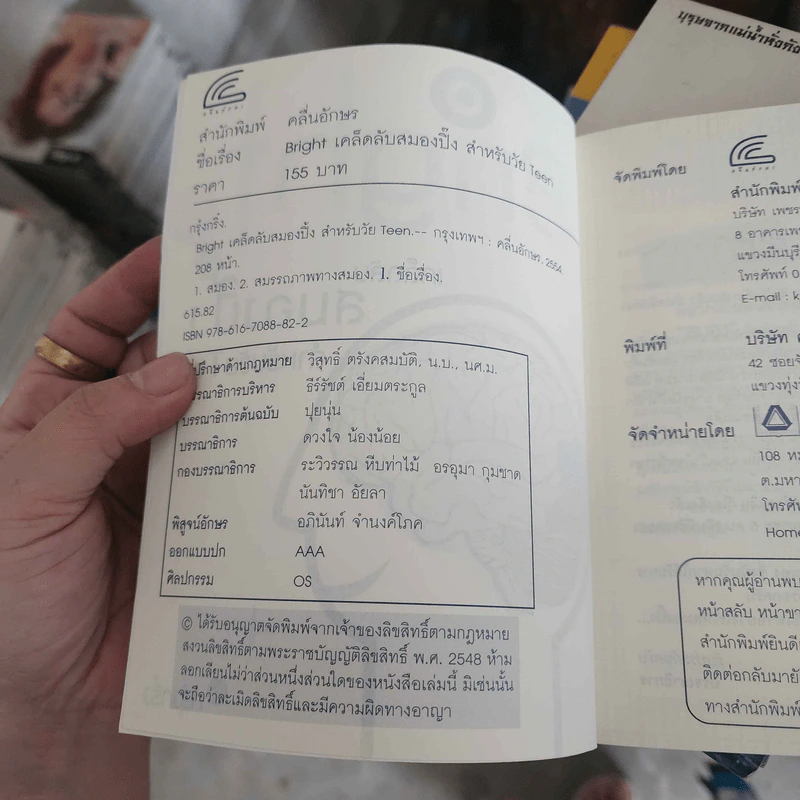 บุรุษจากแม่น้ำหั่งกัง
คลื่นอักษร
สำนักพิมพ์ คลื่นอักษร
ชื่อเรื่อง Bright เคล็ดลับสมองปิ๊ง สำหรับวัย Teen
ราคา 155 บาท
กรุ๋งกริ๋ง.
Bright เคล็ดลับสมองปิ๊ง สำหรับวัย Teen.-- กรุงเทพฯ : คลื่นอักษร, 2554.
208 หน้า.
1. สมอง. 2. สมรรถภาพทางสมอง. I. ชื่อเรื่อง.
615.82
ISBN 978-616-7088-82-2
ปรึกษาด้านกฎหมาย วิสุทธิ์ ตรังคสมบัติ, น.บ., นศ.ม.
บรรณาธิการบริหาร ธีร์รัชต์ เอี่ยมตระกูล
บรรณาธิการต้นฉบับ ปุยนุ่น
บรรณาธิการ ดวงใจ น้องน้อย
กองบรรณาธิการ ระวิวรรณ หีบท่าไม้ อรอุมา กุมชาด
นันทิชา อัยลา
พิสูจน์อักษร อภินันท์ จำนงค์โภค
ออกแบบปก AAA
ศิลปกรรม OS
© ได้รับอนุญาตจัดพิมพ์จากเจ้าของลิขสิทธิ์ตามกฎหมาย
สงวนลิขสิทธิ์ตามพระราชบัญญัติลิขสิทธิ์ พ.ศ. 2548 ห้าม
ลอกเลียนไม่ว่าส่วนหนึ่งส่วนใดของหนังสือเล่มนี้ มิเช่นนั้น
จะถือว่าละเมิดลิขสิทธิ์และมีความผิดทางอาญา
จัดพิมพ์โดย
สำนักพิมพ์
บริษัท เพชร
8 อาคารเพ
แขวงมีนบุรี
โทรศัพท์ 0
E-mail : k
พิมพ์ที่ บริษัท
42 ซอย
แขวงทุ่ง
จัดจำหน่ายโดย
108 ห
ต.มหา
โทรศั
Home
หากคุณผู้อ่านพบ
หน้าสลับ หน้าขา
สำนักพิมพ์ยินดี
ติดต่อกลับมายั
ทางสำนักพิมพ์